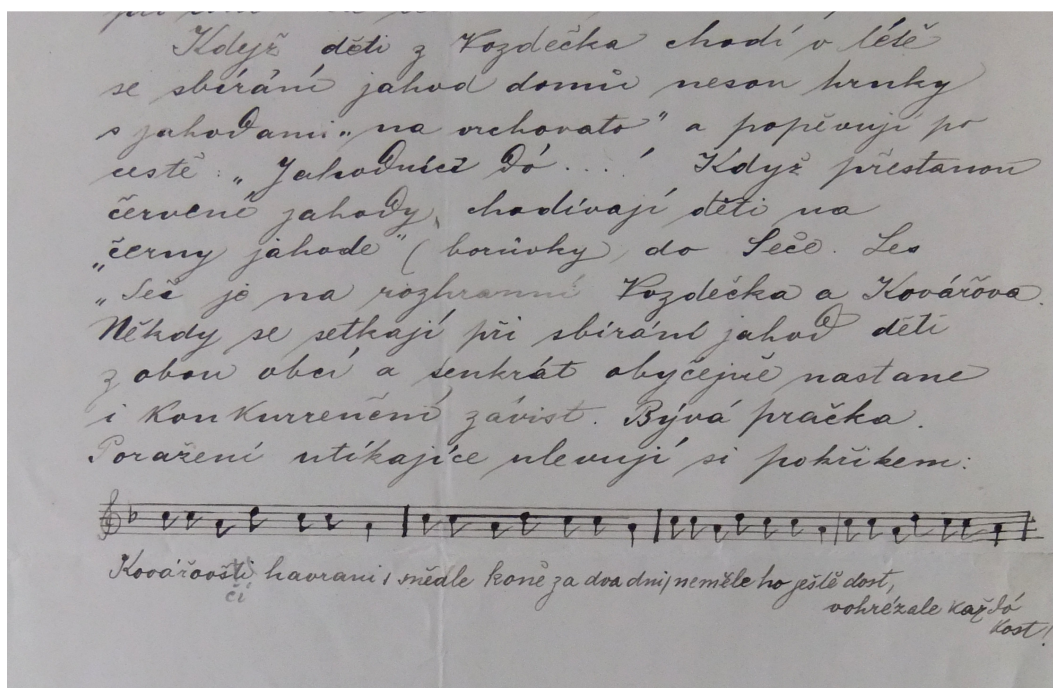 Když děti z Vozděčka chodí v létě
se sbírání jahod domů nesou hrnky
s jahodami „na vrchovato" a popěvují po
cestě: „Jahodnící dó . . . .' Když přestanou
červené jahody, chodívají děti na
„černy jahode" (borůvky) do Seče. Les
„Seč je na rozhranní Vozděčka a Kovářova.
Někdy se setkají při sbírání jahod děti
z obou obcí a tenkrát obyčejně nastane
i konkurrenční závist. Bývá pračka.
Poražení utíkajíce ulevují si pokřikem:
Kovářovšti havrani, snědle koně za dva dni, neměle ho ještě dost,
čí
vohrézale každó
kost!